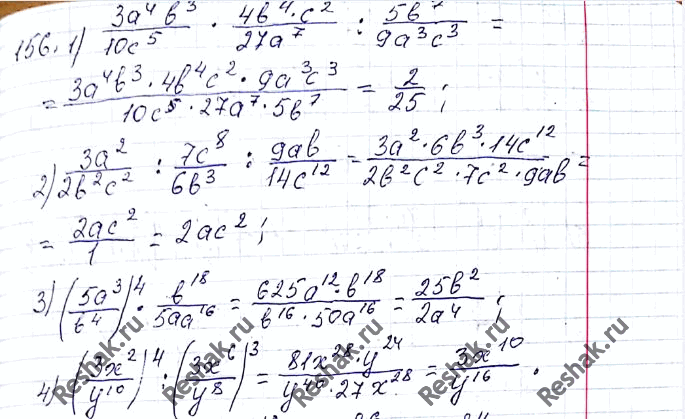 156. 1) 3a⁴b³/10c⁵ · 4b⁴·c²/27a⁷ : 5b⁷/9a³c³ =
= 3a⁴b³·4b⁴c²·9a³c³/10c⁵·27a⁷·5b⁷ = 2/25 ;
2) 3a²/2b²c² : 7c⁸/6b³ : 9ab/14c¹² = 3a²·6b³·14c¹²/2b²c²·7c²·9ab =
= 2ac²/1 = 2ac² ;
3) (5a³/b⁴)⁴ · b¹⁸/50a¹⁶ = 625a¹²·b¹⁸/b¹⁶·50a¹⁶ = 25b²/2a⁴ ;
4) (3x²/y¹⁰)⁴ : (3x⁶/y⁸)³ = 81x²⁸·y²⁴/y⁴⁰·27x²⁸ = 3x¹⁰/y¹⁶ .
Reshak.ru
Reshak.ru
Reshak.ru
Reshak.ru